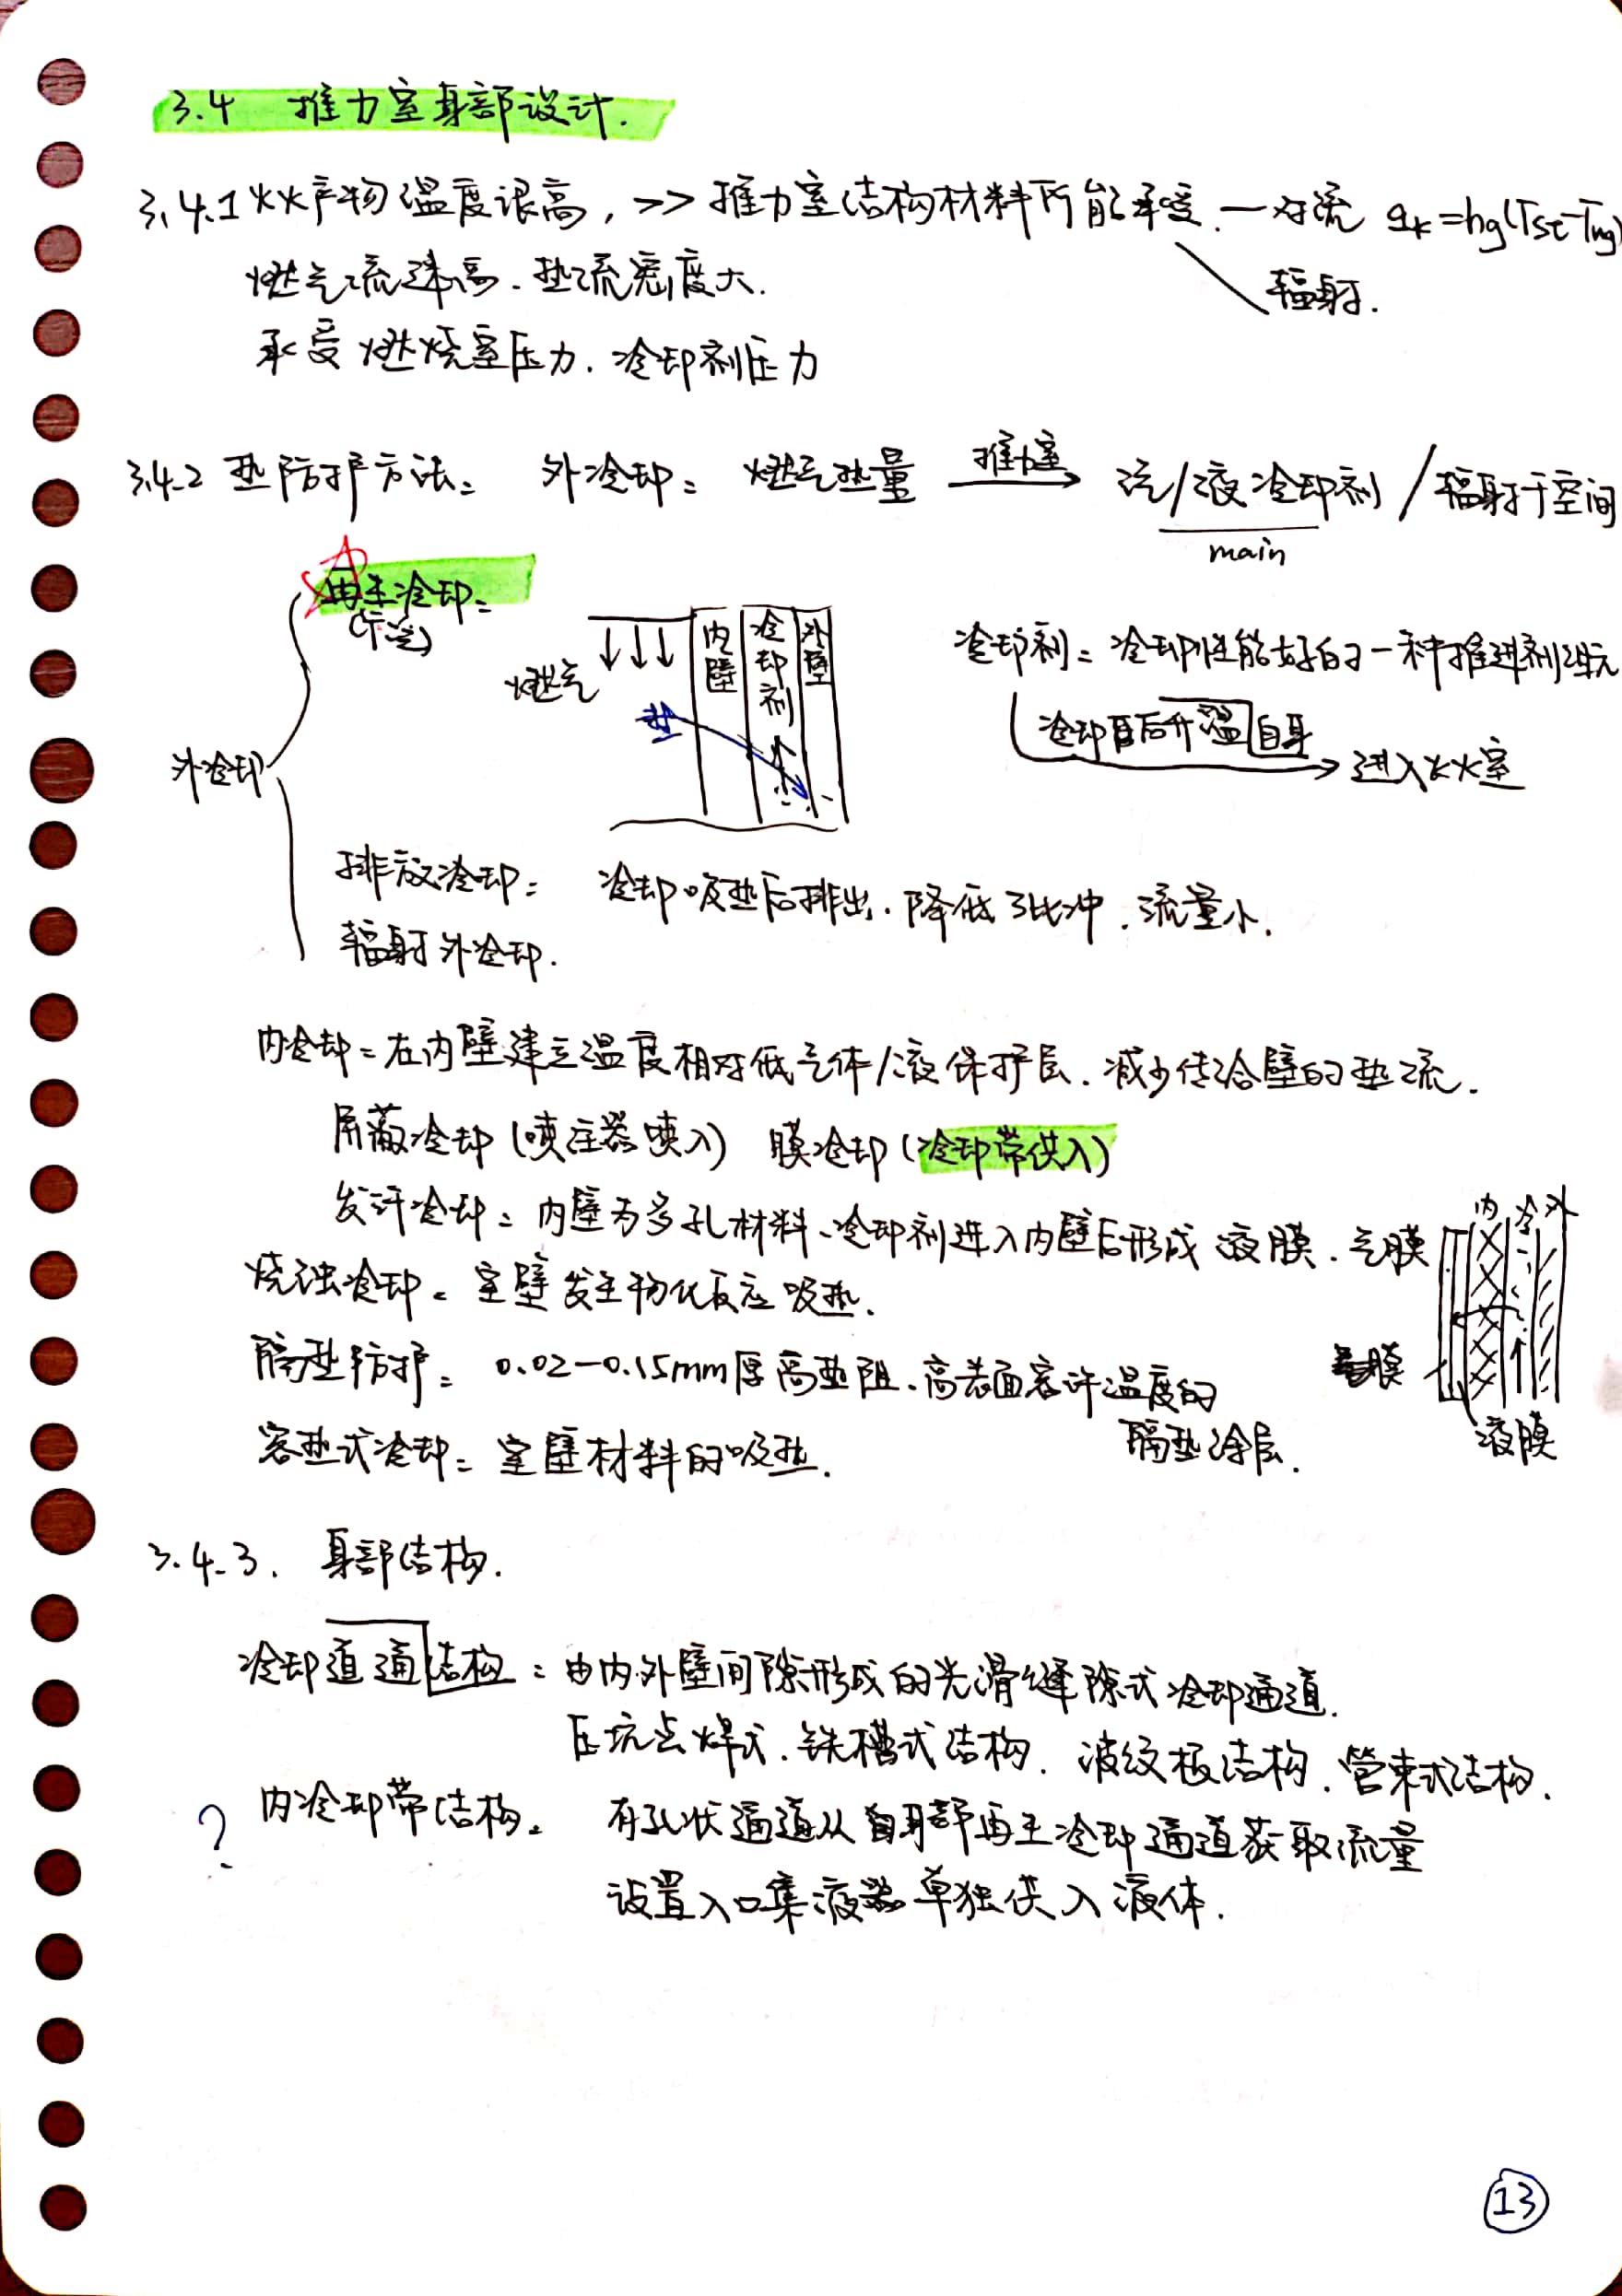 3.4 推力室身部设计.
3.4.1 火火产物温度很高, >> 推力室结构材料所能承受. — 对流 qk=hg(Tst-Twg)
辐射.
燃气流速高. 热流密度大.
承受燃烧室压力. 冷却剂压力
3.4.2 热防护方法: 外冷却: 燃气热量 推力室 → 气/液冷却剂 / 辐射于空间
main
再生冷却:
燃气
内壁 冷却剂 外壁
热
冷却剂: 冷却性能好的一种推进剂组元
冷却后升温自身 → 进入火火室
外冷却
排放冷却: 冷却吸热后排出. 降低了比冲. 流量小.
辐射外冷却.
内冷却: 在内壁建立温度相对低气体/液保护层. 减少传给壁的热流.
屏蔽冷却 (喷注器喷入) 膜冷却 (冷却带供入)
发汗冷却: 内壁为多孔材料、冷却剂进入内壁后形成液膜. 气膜
内 冷 外
烧蚀冷却: 室壁发生物化反应吸热.
隔热防护: 0.02-0.15mm厚高热阻. 高表面容许温度的
隔热涂层.
膜
液膜
容热式冷却: 室壁材料的吸热.
3.4.3. 身部结构.
冷却道通结构: 由内外壁间隙形成的光滑缝隙式冷却通道.
压坑点焊式. 铣槽式结构. 波纹板结构. 管束式结构.
? 内冷却带结构: 有孔状通道从身部再生冷却通道获取流量
设置入口集液器单独供入液体.
13